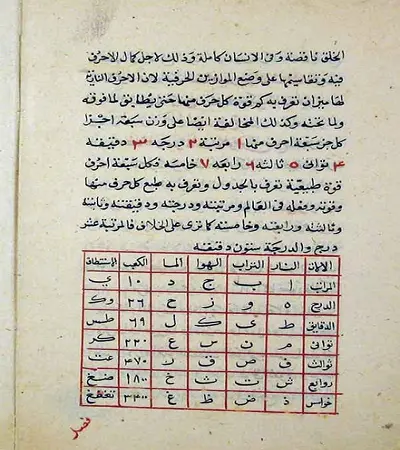 الخلق ناقصة وفى الانسان كاملة وذلك لاجل كمال الاحرف
فيه على وضع الموازين الحرفية لان الاحرف النارية
لها ميزان نعرف به كم قوة كل حرف منها حتى يطابق لما فوقه
ولما تحته وكذلك المخالفة ايضا على وزن سبعة اجزا
كل جز سبعة احرف منها ١ مرتبة ٢ درجة ٣ دقيقة
٤ ثوانى ٥ ثالثة ٦ رابعة ٧ خامسة فكل سبعة احرف
قوة طبيعية تعرف بالجدول وتعرف به طبع كل حرف منها
وقوته وفعله فى العالم ومرتبته ودرجته ودقيقته وثانيته
وثالثته ورابعته وخامسته كما ترى على الخلاف فالمرتبة عشر
درج والدرجة ستون دقيقة
النار التراب الهوا الما الكعب
المراتب ا ب ج د ١٠ ي
الدرج ه و ز ح ٢٦ وك
الدقايق ط ي ك ل ٦٩ طس
ثوانى م ن س ع ٢٢٠ كر
ثوالث ف ص ق ر ٤٧٠ عت
روابع ش ت ث خ ١٨٠٠ ضغ
خوامس ذ ض ظ غ ٣٤٠٠ تغغغ
فصل